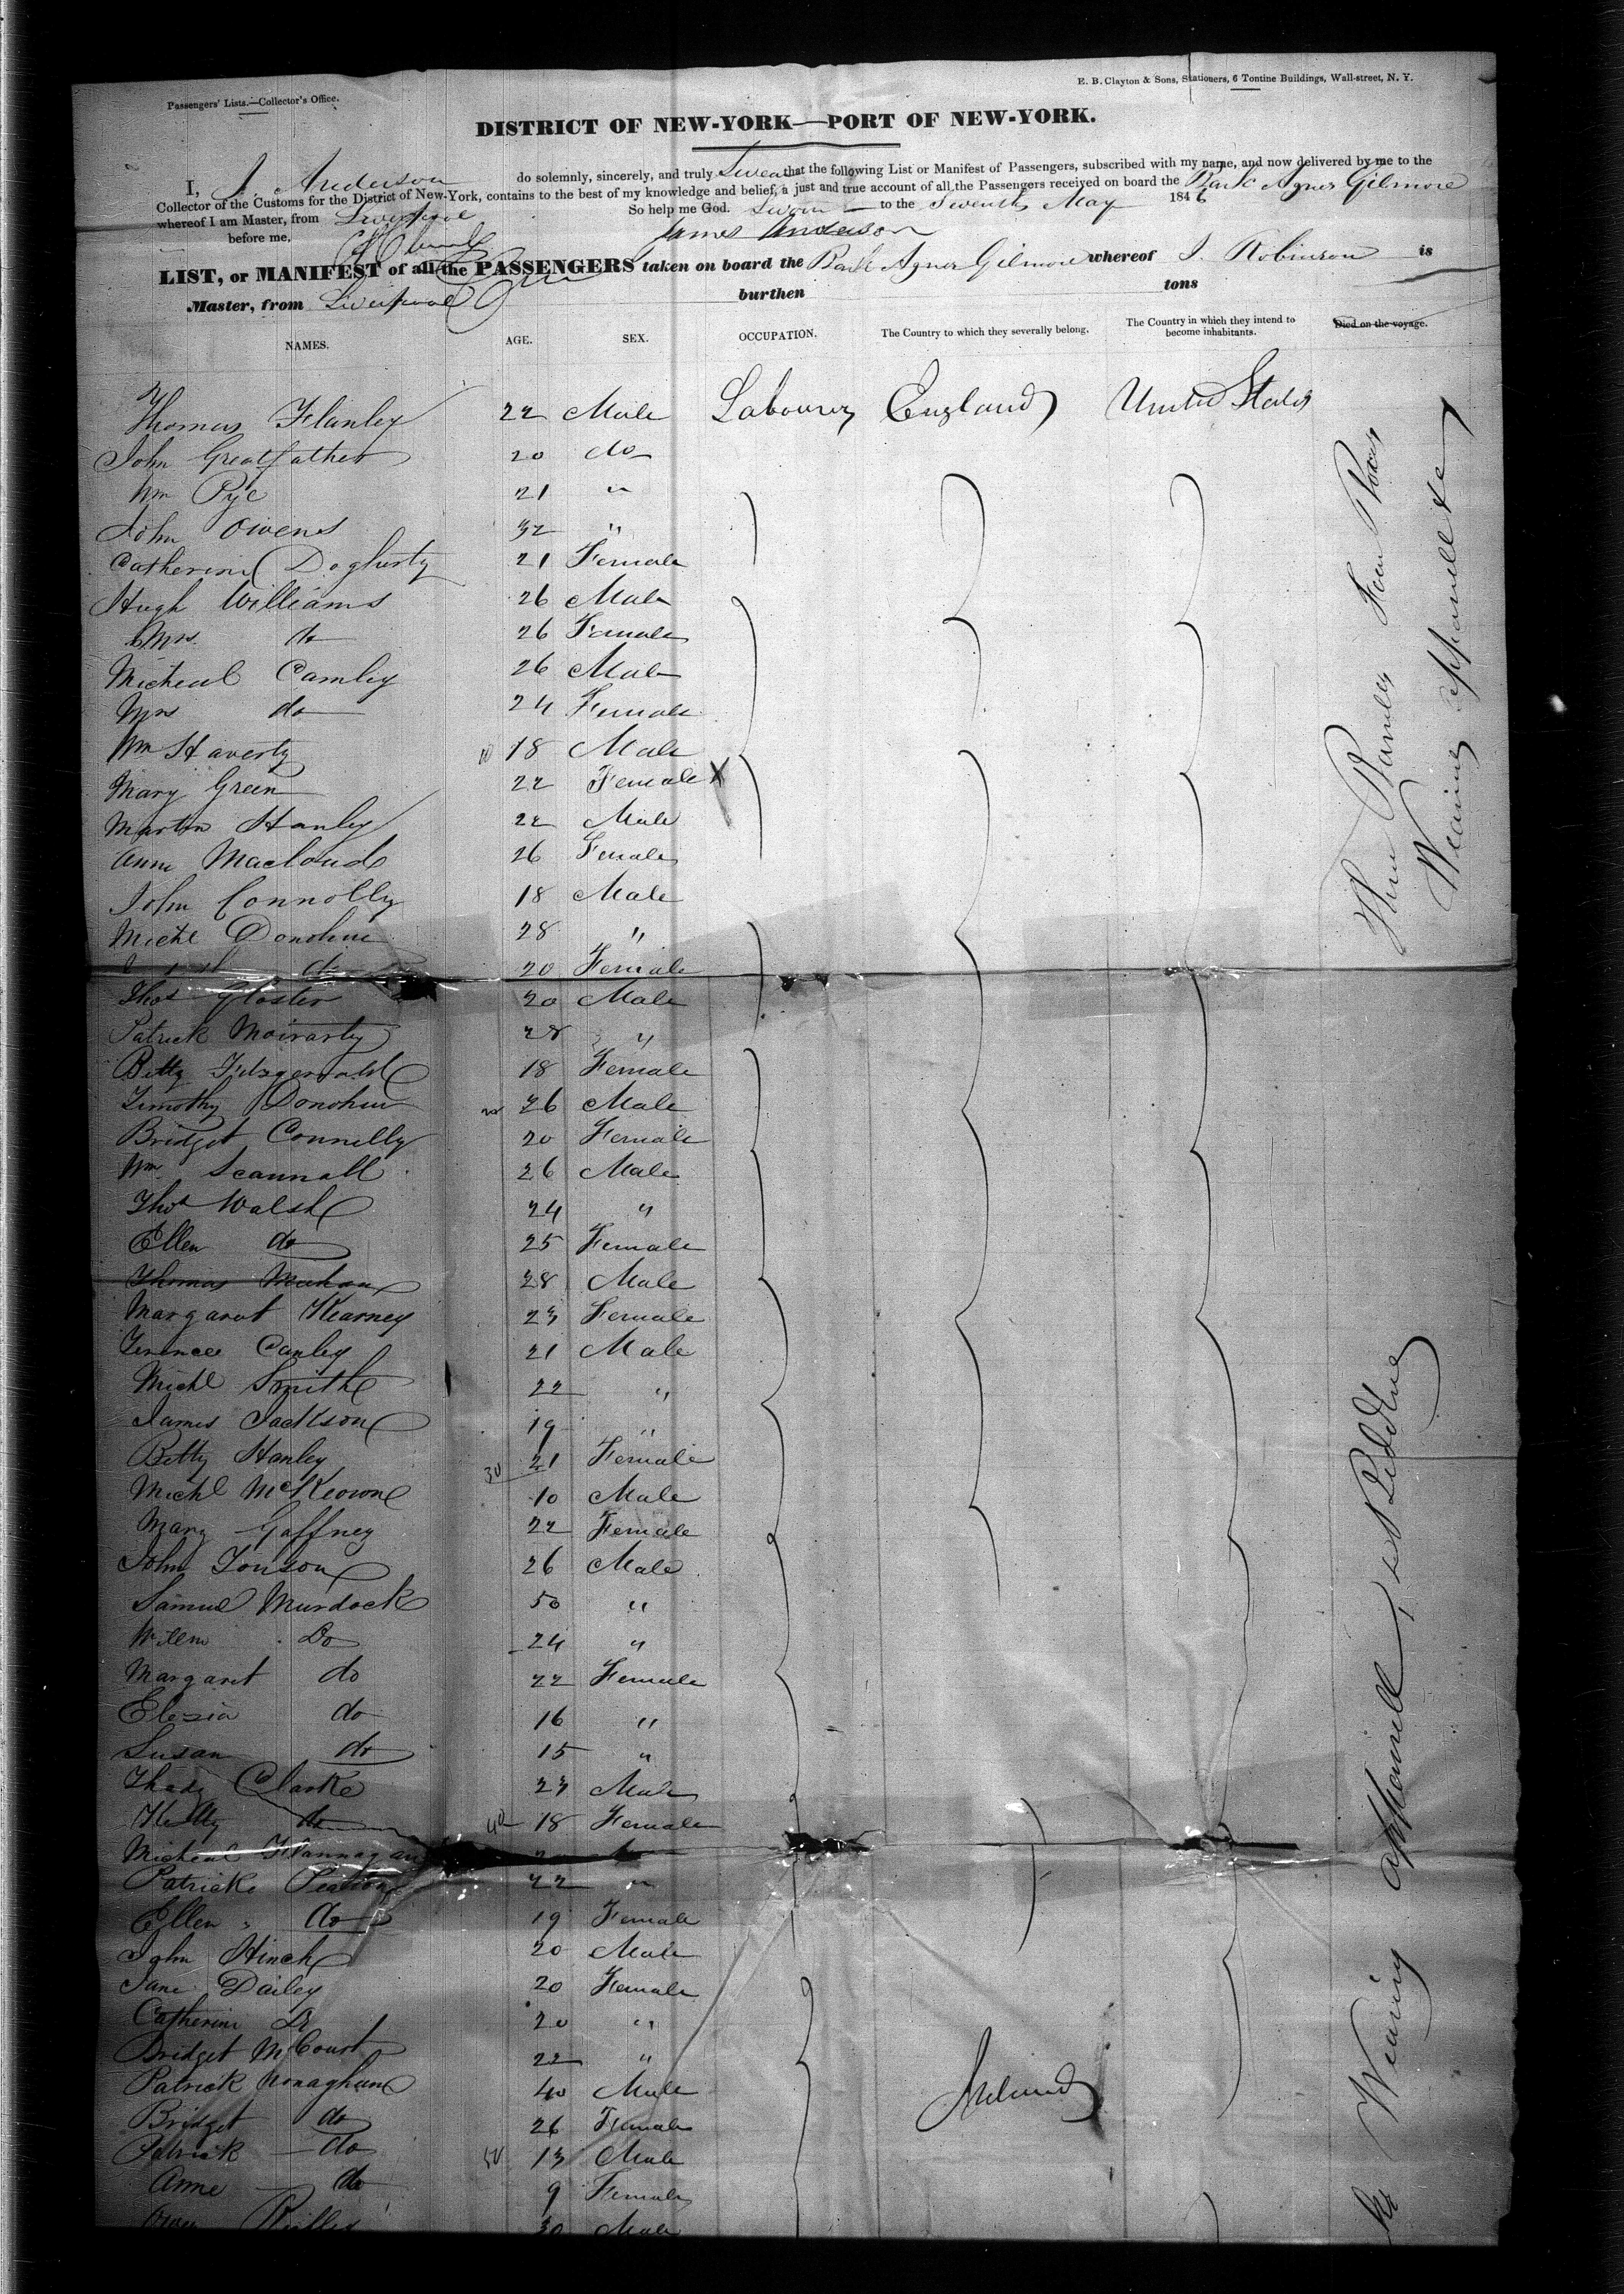 Passengers' Lists.—Collector's Office.
E. B. Clayton & Sons, Stationers, 6 Tontine Buildings, Wall-street, N. Y.
DISTRICT OF NEW-YORK—PORT OF NEW-YORK.
I, J. Anderson do solemnly, sincerely, and truly Swear that the following List or Manifest of Passengers, subscribed with my name, and now delivered by me to the
Collector of the Customs for the District of New-York, contains to the best of my knowledge and belief, a just and true account of all the Passengers received on board the Bark Agnes Gilmore
whereof I am Master, from Liverpool So help me God. Sworn to the Seventh May 1846
before me, James Anderson
LIST, or MANIFEST of all the PASSENGERS taken on board the Bark Agnes Gilmore whereof J. Robinson is
Master, from Liverpool burthen tons
NAMES. AGE. SEX. OCCUPATION. The Country to which they severally belong. The Country in which they intend to become inhabitants. Died on the voyage.
Thomas Flanley 22 Male Labourer England United States
John Greatfather 20 do
Wm Pye 21 "
John Owens 32 "
Catherine Dogherty 21 Female
Hugh Williams 26 Male
Mrs. do 26 Female
Micheal Camley 26 Male
Mrs do 24 Female
Wm Haverty 10 18 Male
Mary Green 22 Female X
Martin Hanley 22 Male
Ann Macloud 26 Female
John Connolly 18 Male
Michl Donohue 28 "
do 20 Female
Thos Gloster 20 Male
Patrick Moirarty 28 "
Betty Fitzgerald 18 Female
Timothy Donohue 20 26 Male
Bridget Connelly 20 Female
Wm Scannall 26 Male
Thos Walsh 24 "
Ellen do 25 Female
Thomas Meehan 28 Male
Margaret Kearney 23 Female
Terence Canley 21 Male
Michl Smith 22 "
James Jackson 19 "
Betty Hanley 30 21 Female
Michl McKeown 10 Male
Mary Gaffney 22 Female
John Tonson 26 Male
Samuel Murdock 50 "
Willm Do 24 "
Margaret do 22 Female
Elezia do 16 "
Susan do 15 "
Thady Clarke 23 Male
Kitty do 40 18 Female
Micheal Flannagan
Patrick 22 "
Ellen do 19 Female
John Hinch 20 Male
Jane Dailey 20 Female
Catherine Do 20 "
Bridget McCourt 22 "
Patrick Monaghan 40 Male Ireland
Bridget do 26 Female
Patrick do 50 13 Male
Anne do 9 Female
Owen Reilley 30 Male
Three Bundles Four Boxes
Wearing Apparrell &c
Wearing Apparrell, & Bedding